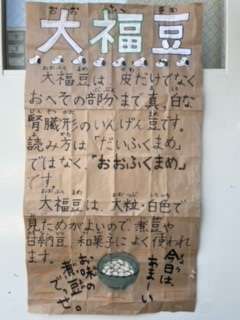 大福豆
大福豆は、皮だけでなく
おへその部分まで真、白な
腎臓形のいんげん豆です。
読み方は「だいふくまめ」
ではなく、"おおふくまめ"
です。
大福豆は、大粒・白色で
見ためがよいので、煮豆や
甘納豆、和菓子によく使われ
ます。
今日は
あまーい
お味の
煮豆
でっせ。